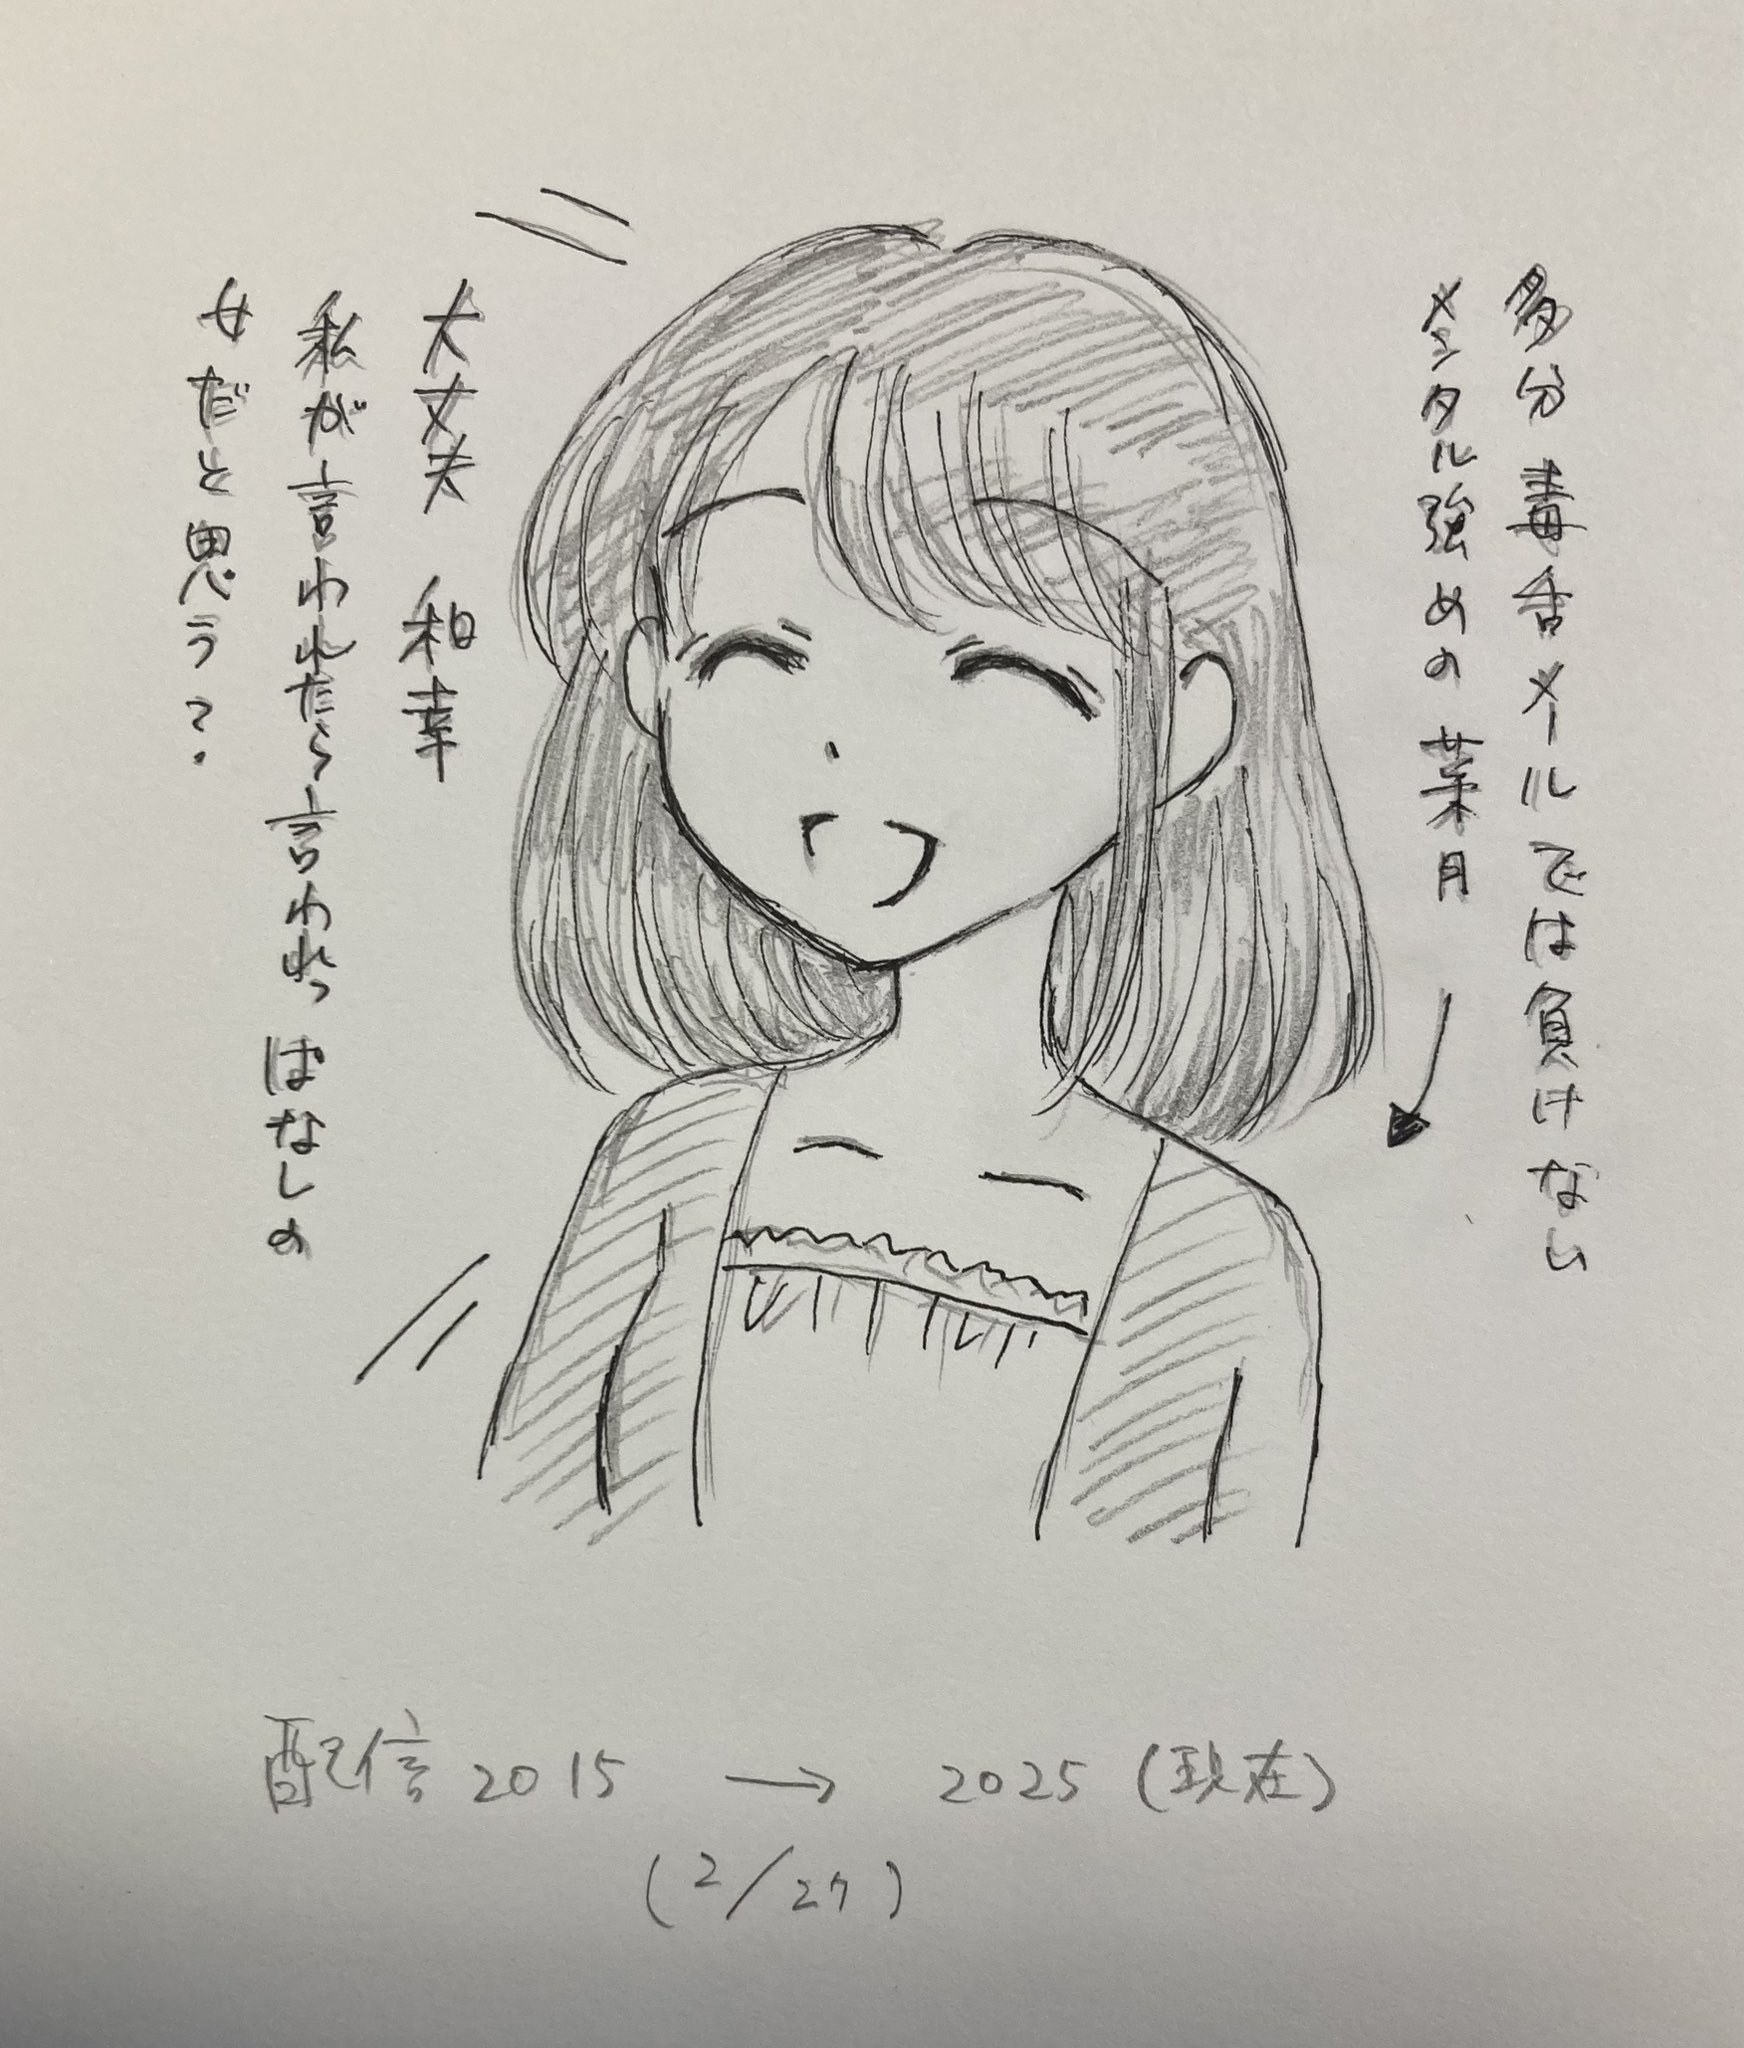 多分毒舌メールでは負けない
メンタル強めの菜月
大丈夫 和幸
私が言われたら言われっぱなしの
女だと思う?
配信2015 → 2025(現在)
(2/27)